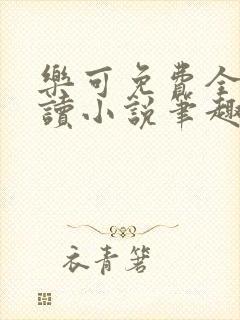 樂可免費全
讀小說筆趣
衣青箬